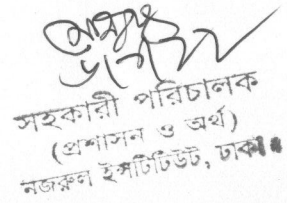 সহকারী পরিচালক
(প্রশাসন ও অর্থ)
নজরুল ইন্সটিটিউট, ঢাকা।